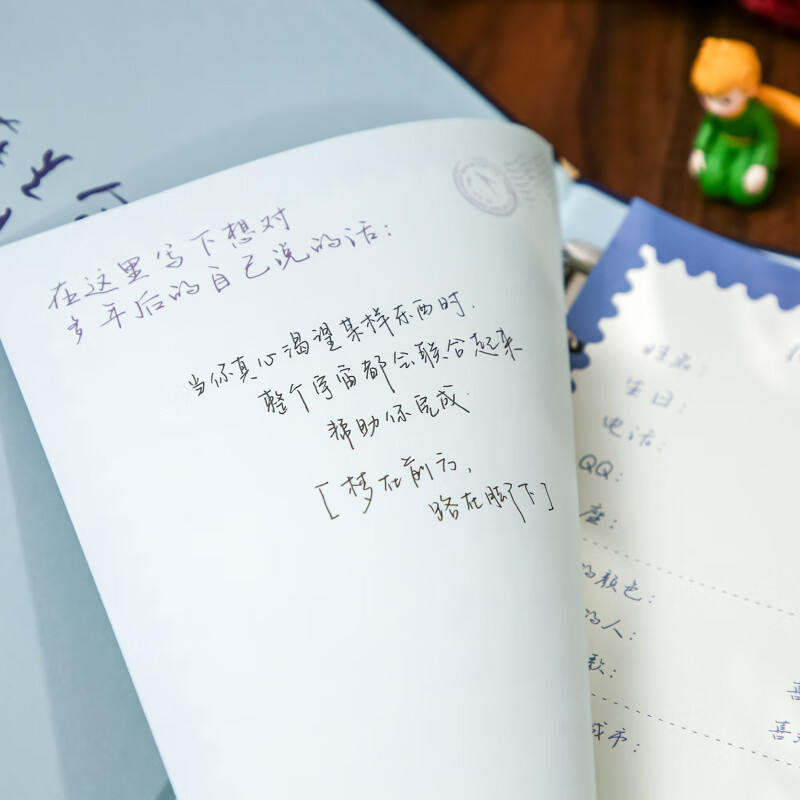 在这里写下想对
多年后的自己说的话：
当你真心渴望某样东西时.
整个宇宙都会联合起来
帮助你完成.
[梦在前方,
路在脚下]
姓名：
生日：
电话：
QQ：
座：
的颜色：
的人：
歌：
城市：
喜
喜